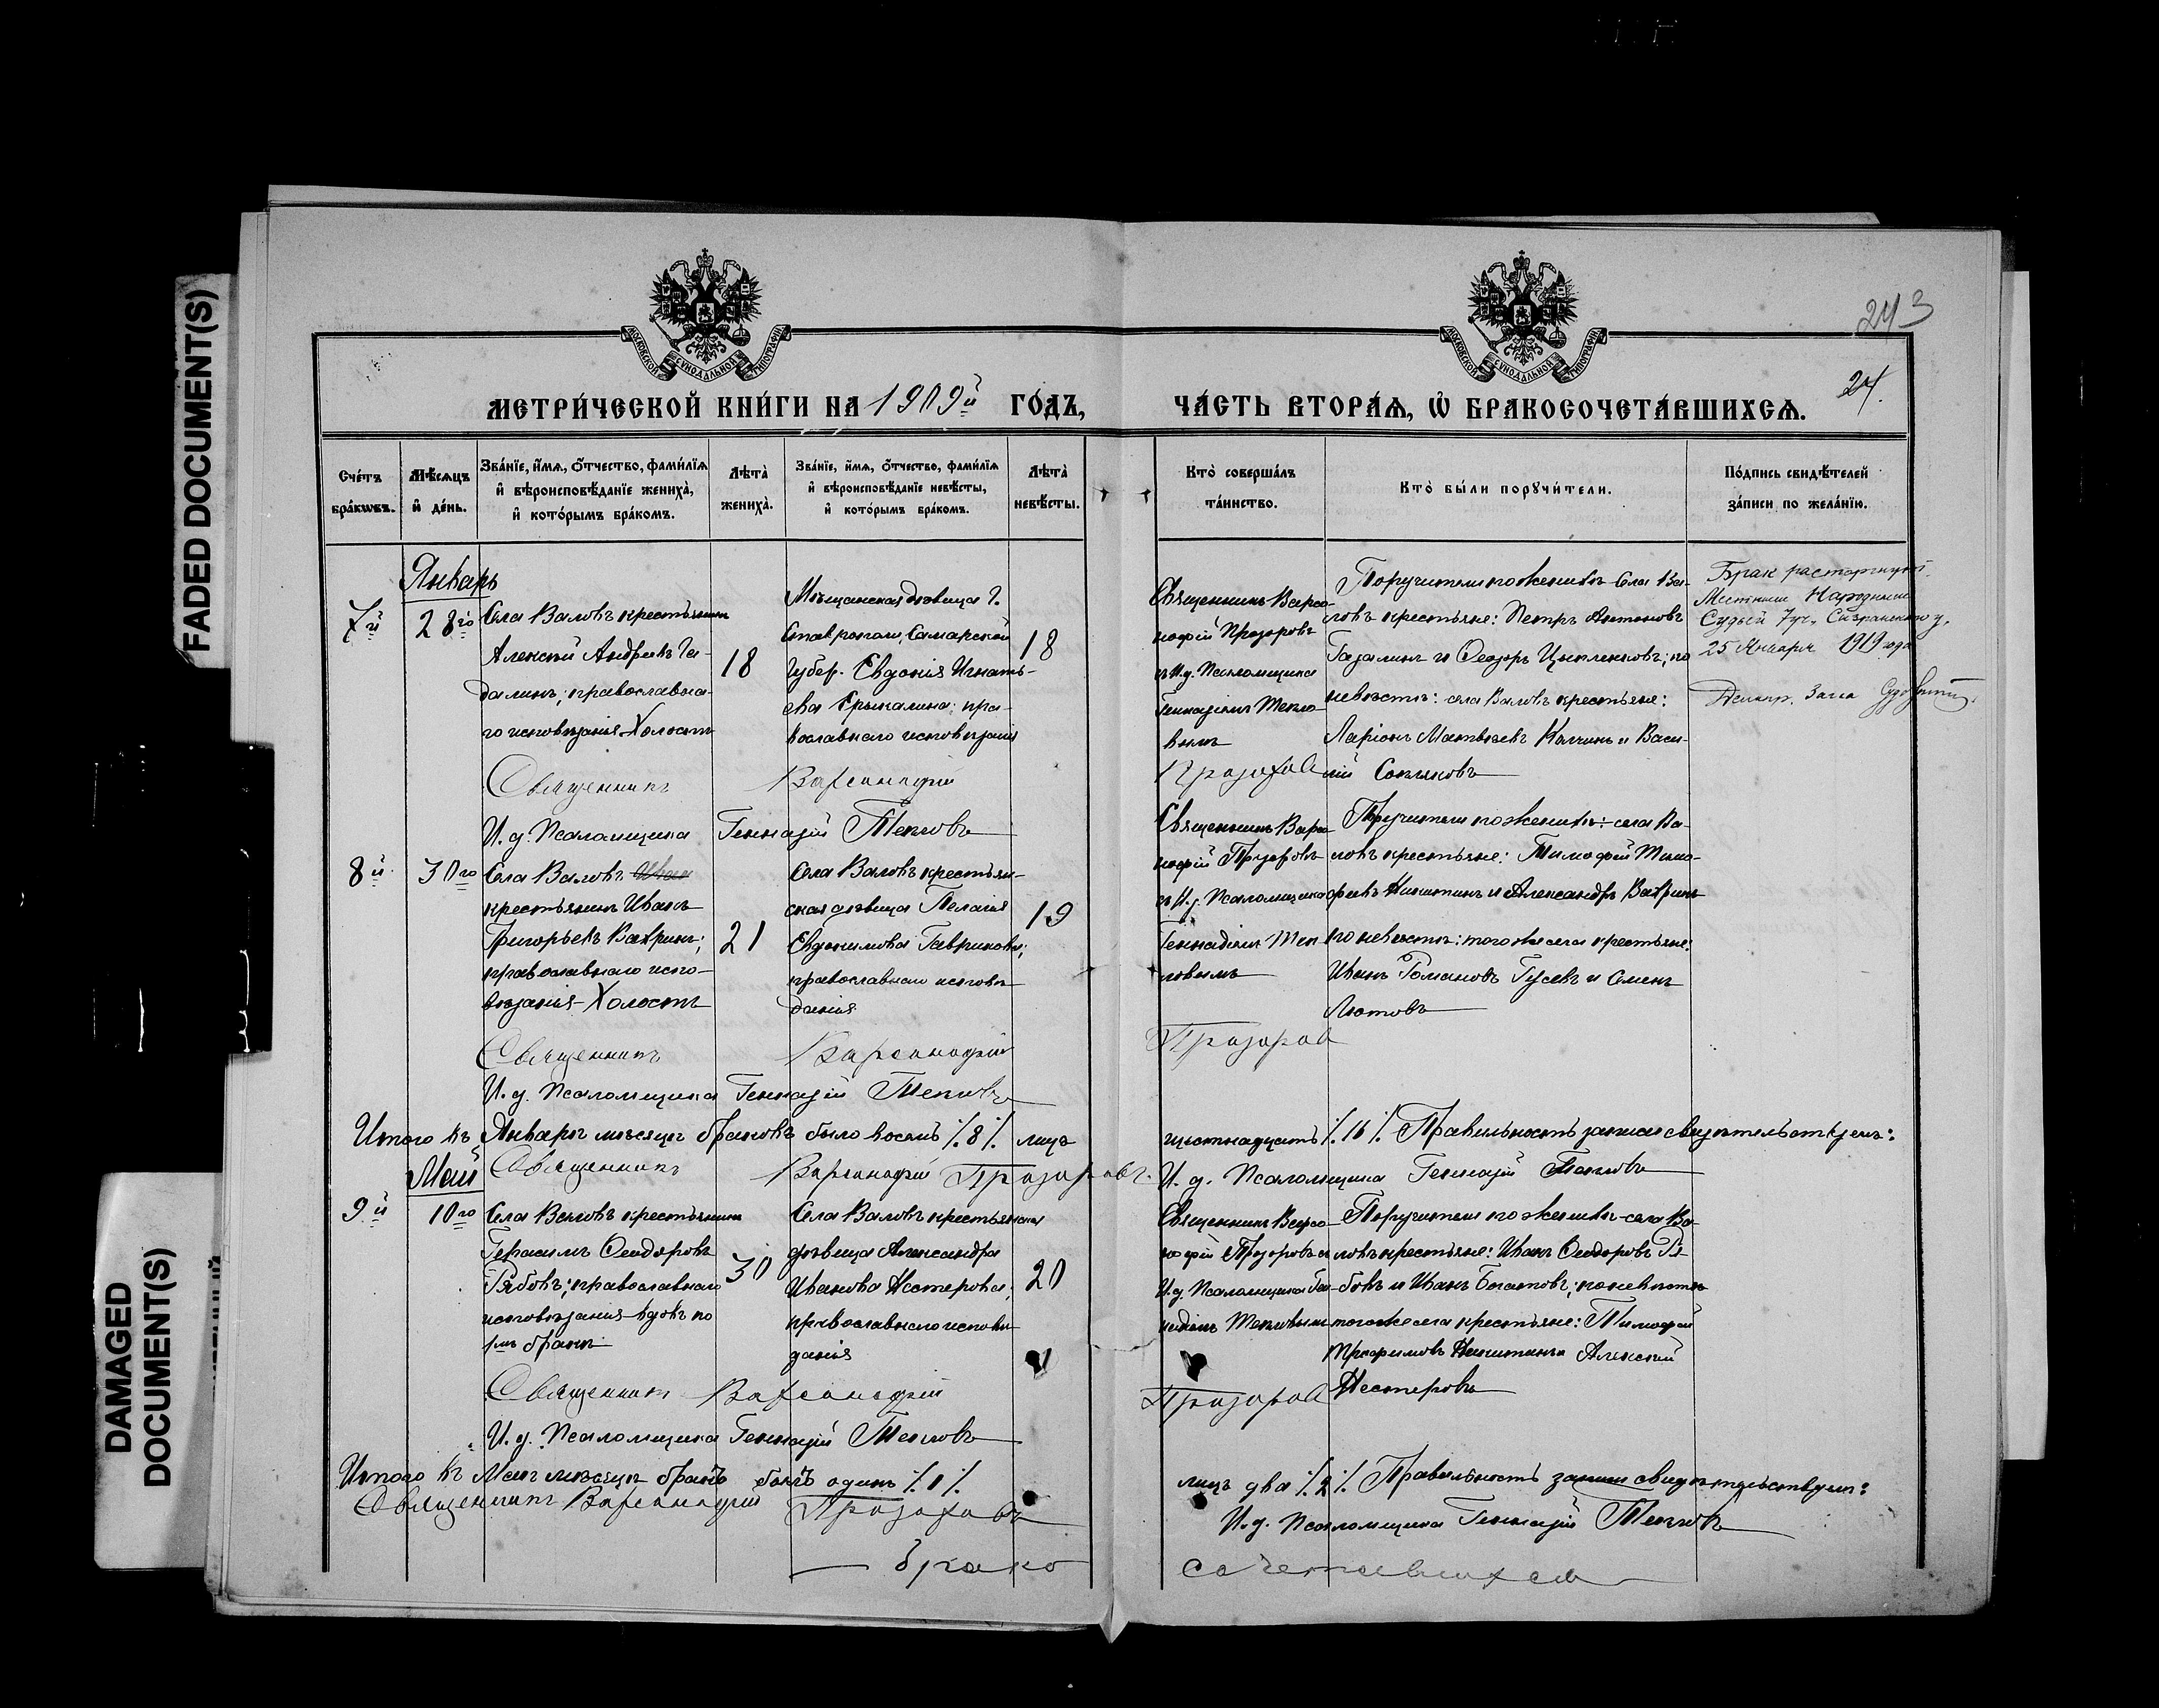 FADED DOCUMENT(S)
DAMAGED DOCUMENT(S)
243
24.
МОСКОВСКОЙ СѴНОДАЛЬНОЙ ТИПОГРАФІИ
МОСКОВСКОЙ СѴНОДАЛЬНОЙ ТИПОГРАФІИ
МЕТРИ́ЧЕСКОЙ КНИ́ГИ НА 1909й ГО́ДЪ,
ЧА́СТЬ ВТОРА́Ѧ, Ѡ҆ БРАКОСОЧЕТА́ВШИХСѦ.
Сче́тъ бра́кωвъ.
Мѣ́сѧцъ и҆ де́нь.
Зва́нїе, и҆́мѧ, ѻ҆́тчество, фами́лїѧ
и҆ вѣроисповѣ́данїе жениха̀,
и҆ кото́рымъ бра́комъ.
Лѣта̀ жениха̀.
Зва́нїе, и҆́мѧ, ѻ҆́тчество, фами́лїѧ
и҆ вѣроисповѣ́данїе невѣ́сты,
и҆ кото́рымъ бра́комъ.
Лѣта̀ невѣ́сты.
Кто̀ соверша́лъ
та́инство.
Кто̀ бы́ли порꙋчи́тели.
По́дпись свидѣ́телей
за́писи по жела́нїю.
Январь
7й
28го
СелаВаловъ крестьянинъ
Алексѣй Андреевъ Га-
залинъ; православна-
го исповѣданія Холостъ
18
Мѣщанская дѣвица г.
Ставрополя, Самарской
Губер. Евдокія Игнать-
ева; пра-
вославнаго исповѣданія
18
Священникъ Варсо-
нофій Прозоровъ
съ И.д. Псаломщика
Геннадіемъ Тепло-
вымъ
Поручители по женихѣ села Ва-
ловъ крестьяне: Петръ Антоновъ
Газалинъ и Ѳеодоръ Цыпленковъ; по
невѣстѣ: села Валовъ крестьяне:
Ларіонъ Матвѣевъ и Васи-
лій
Брак расторгнут
Местным Народным
Судьей 7 уч. Сызранского у.
25 Января 1919 года
Священникъ Варсонофій Прозоровъ
И.д. Псаломщика Геннадій Тепловъ
8й
30го
Села Валовъ
крестьянинъ Иванъ
Григорьевъ Вахринъ;
православнаго испо-
вѣданія Холостъ
21
Села Валовъ крестьян-
ская дѣвица Пелагія
Евдокимова Гаврикова;
православнаго исповѣ
данія
19
Священникъ Варсо
нофій Прозоровъ
съ И.д. Псаломщика
Геннадіемъ Теп
ловымъ
Поручители по женихѣ: села Ва-
ловъ крестьяне: Тимофей Тимо-
феевъ Никитинъ и Александръ Вахринъ
по невѣстѣ: того же села крестьяне:
Иванъ Романовъ Гусевъ и Семенъ
Лютовъ
Священникъ Варсонофій Прозоровъ
И.д. Псаломщика Геннадій Тепловъ
Итого въ Январѣ мѣсяцѣ браковъ было восемь % 8 % лицъ
шестнадцать % 16 % Правильность записи свидѣтельствуемъ:
Священникъ Варсонофій Прозоровъ.
И.д. Псаломщика Геннадій Тепловъ
Май
9й
10го
Села Валовъ крестьянинъ
Герасимъ Ѳеодоровъ
Рябовъ; православнаго
исповѣданія вдовъ по
1мъ бракѣ
30
Села Валовъ крестьянская
дѣвица Александра
Иванова Нестерова;
православнаго исповѣ
данія
20
Священникъ Варсо-
нофій Прозоровъ съ
И.д. Псаломщика Ген-
надіемъ Тепловымъ
Поручители по женихѣ села Ва-
ловъ крестьяне: Иванъ Ѳеодоровъ Ря-
бовъ и Иванъ Богатовъ; по невѣстѣ
того же села крестьяне: Тимофей
Трофимовъ Никитинъ и Алексѣй
Нестеровъ
Священникъ Варсонофій Прозоровъ
И.д. Псаломщика Геннадій Тепловъ
Итого въ Маѣ мѣсяцѣ бракъ былъ одинъ % 1 %
лицъ два % 2 % Правильность записи свидѣтельствуемъ:
Священникъ Варсонофій Прозоровъ
И.д. Псаломщика Геннадій Тепловъ
брако
сочетавшихся